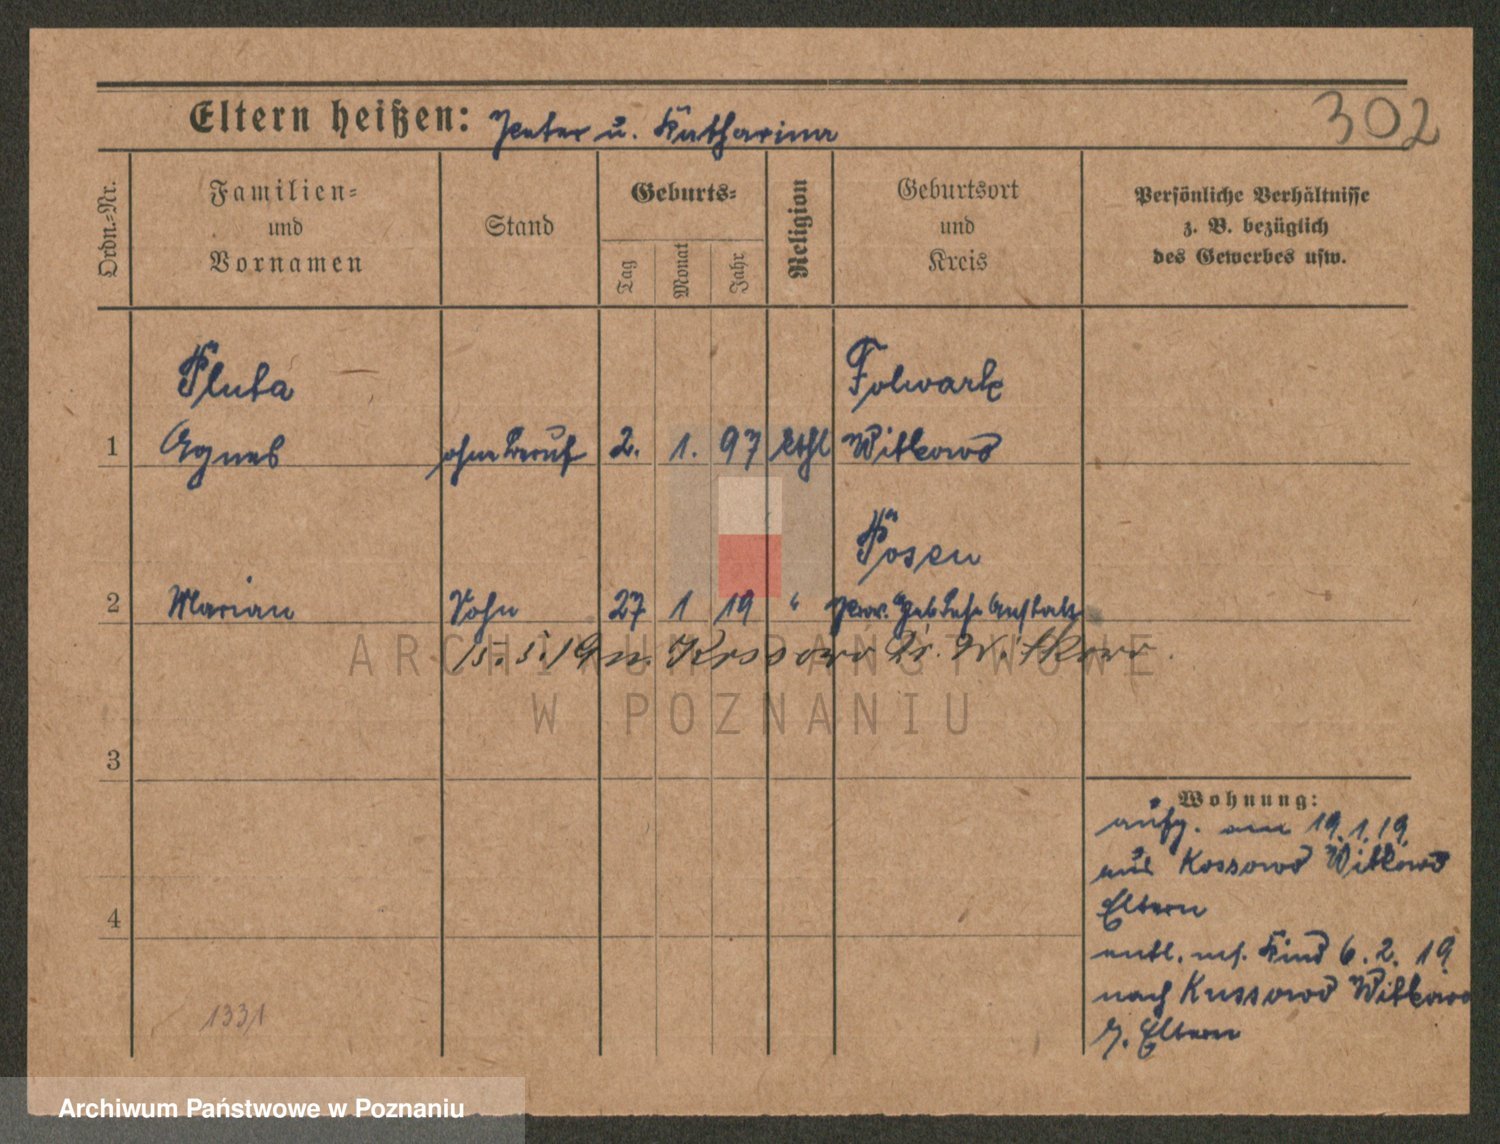 302
Eltern heißen: Peter u. Katharina
Ordn.-Nr.
Familien-
und
Vornamen
Stand
Geburts-
Tag
Monat
Jahr
Religion
Geburtsort
und
Kreis
Persönliche Verhältnisse
z. B. bezüglich
des Gewerbes usw.
Pluta Folwark
1 Agnes ohne Beruf 2. 1. 97 kthl Witkowo
Posen
2 Marian Sohn 27 1 19 " Prov. Heb Lehr Anstalt
15. 5. 19 n. Kossowo Kr. Witkowo.
ARCHIWUM PAŃSTWOWE
W POZNANIU
3
Wohnung:
aufg. am 19.1.19
aus Kossowo Witkowo
Eltern
4
entl. m. Kind 6. 2. 19
nach Kussowo Witkowo
z. Eltern
1331
Archiwum Państwowe w Poznaniu